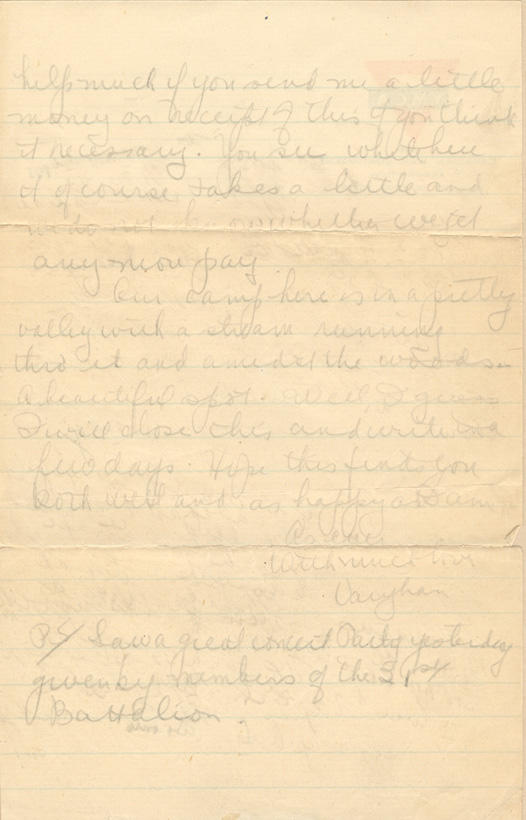 help much if you send me a little
money on receipt of this if you think
it necessary. You see while here
it of course takes a little and
we do not know whether we get
any more pay
Our camp here is in a pretty
valley with a stream running
thro it and amidst the woods -
a beautiful spot. Well I guess
I will close this and write in a
few days. Hope this finds you
both well and as happy as I am
As ever
With much love
Vaughan
PS/ Saw a great concert Party yesterday
given by members of the 21st
Battalion.